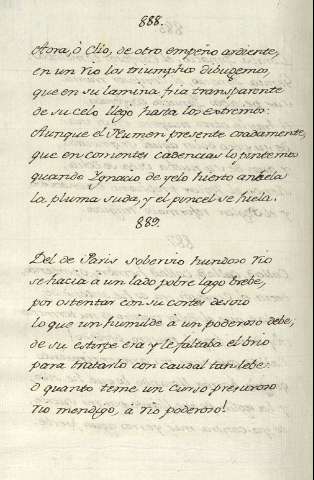 888.
Aora, ò Clio, de otro empeño ardiente,
en un rio los triumphos dibugemos,
que en su lamina fria transparente
de su celo llegò hasta los extremos.
Aunque el Numen presente osadamente,
que en corrientes cadencias lo pintemos
quando Ygnacio de yelo hierto anhela
la pluma suda, y el pincel se hiela.
889.
Del de Paris sobervio hundoso rio
se hacia à un lado pobre lago brebe,
por ostentar con su cortes desvio
lo que un humilde à un poderoso debe;
de su estirpe era y le faltaba el brio
para tratarlo con caudal tan lebe.
ò quanto teme un curso presuroso
rio mendigo, à rio poderoso!